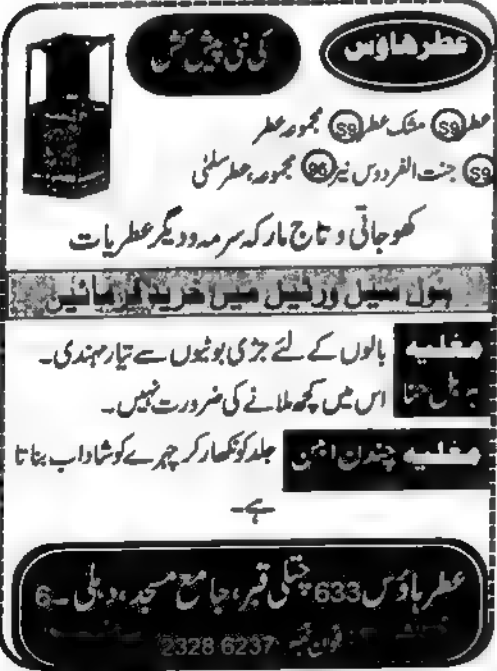 عطر هاؤس
کی نئی پیش کش
عطر S9 مشک عطر S9 مجموعہ عطر
S9 جنت الفردوس نیز 96 مجموعہ، عطر سلمٰی
کھوجاتی و تاج مارکہ سرمہ و دیگر عطریات
ہول سیل ورٹیل میں خرید فرمائیں
مغلیہ ہربل حنا
بالوں کے لئے جڑی بوٹیوں سے تیار مہندی۔
اس میں کچھ ملانے کی ضرورت نہیں۔
مغلیہ چندن ابٹن
جلد کو نکھار کر چہرے کو شاداب بناتا
ہے۔
عطر ہاؤس 633 چتلی قبر، جامع مسجد، دہلی۔6
فون نمبر: 2328 6237